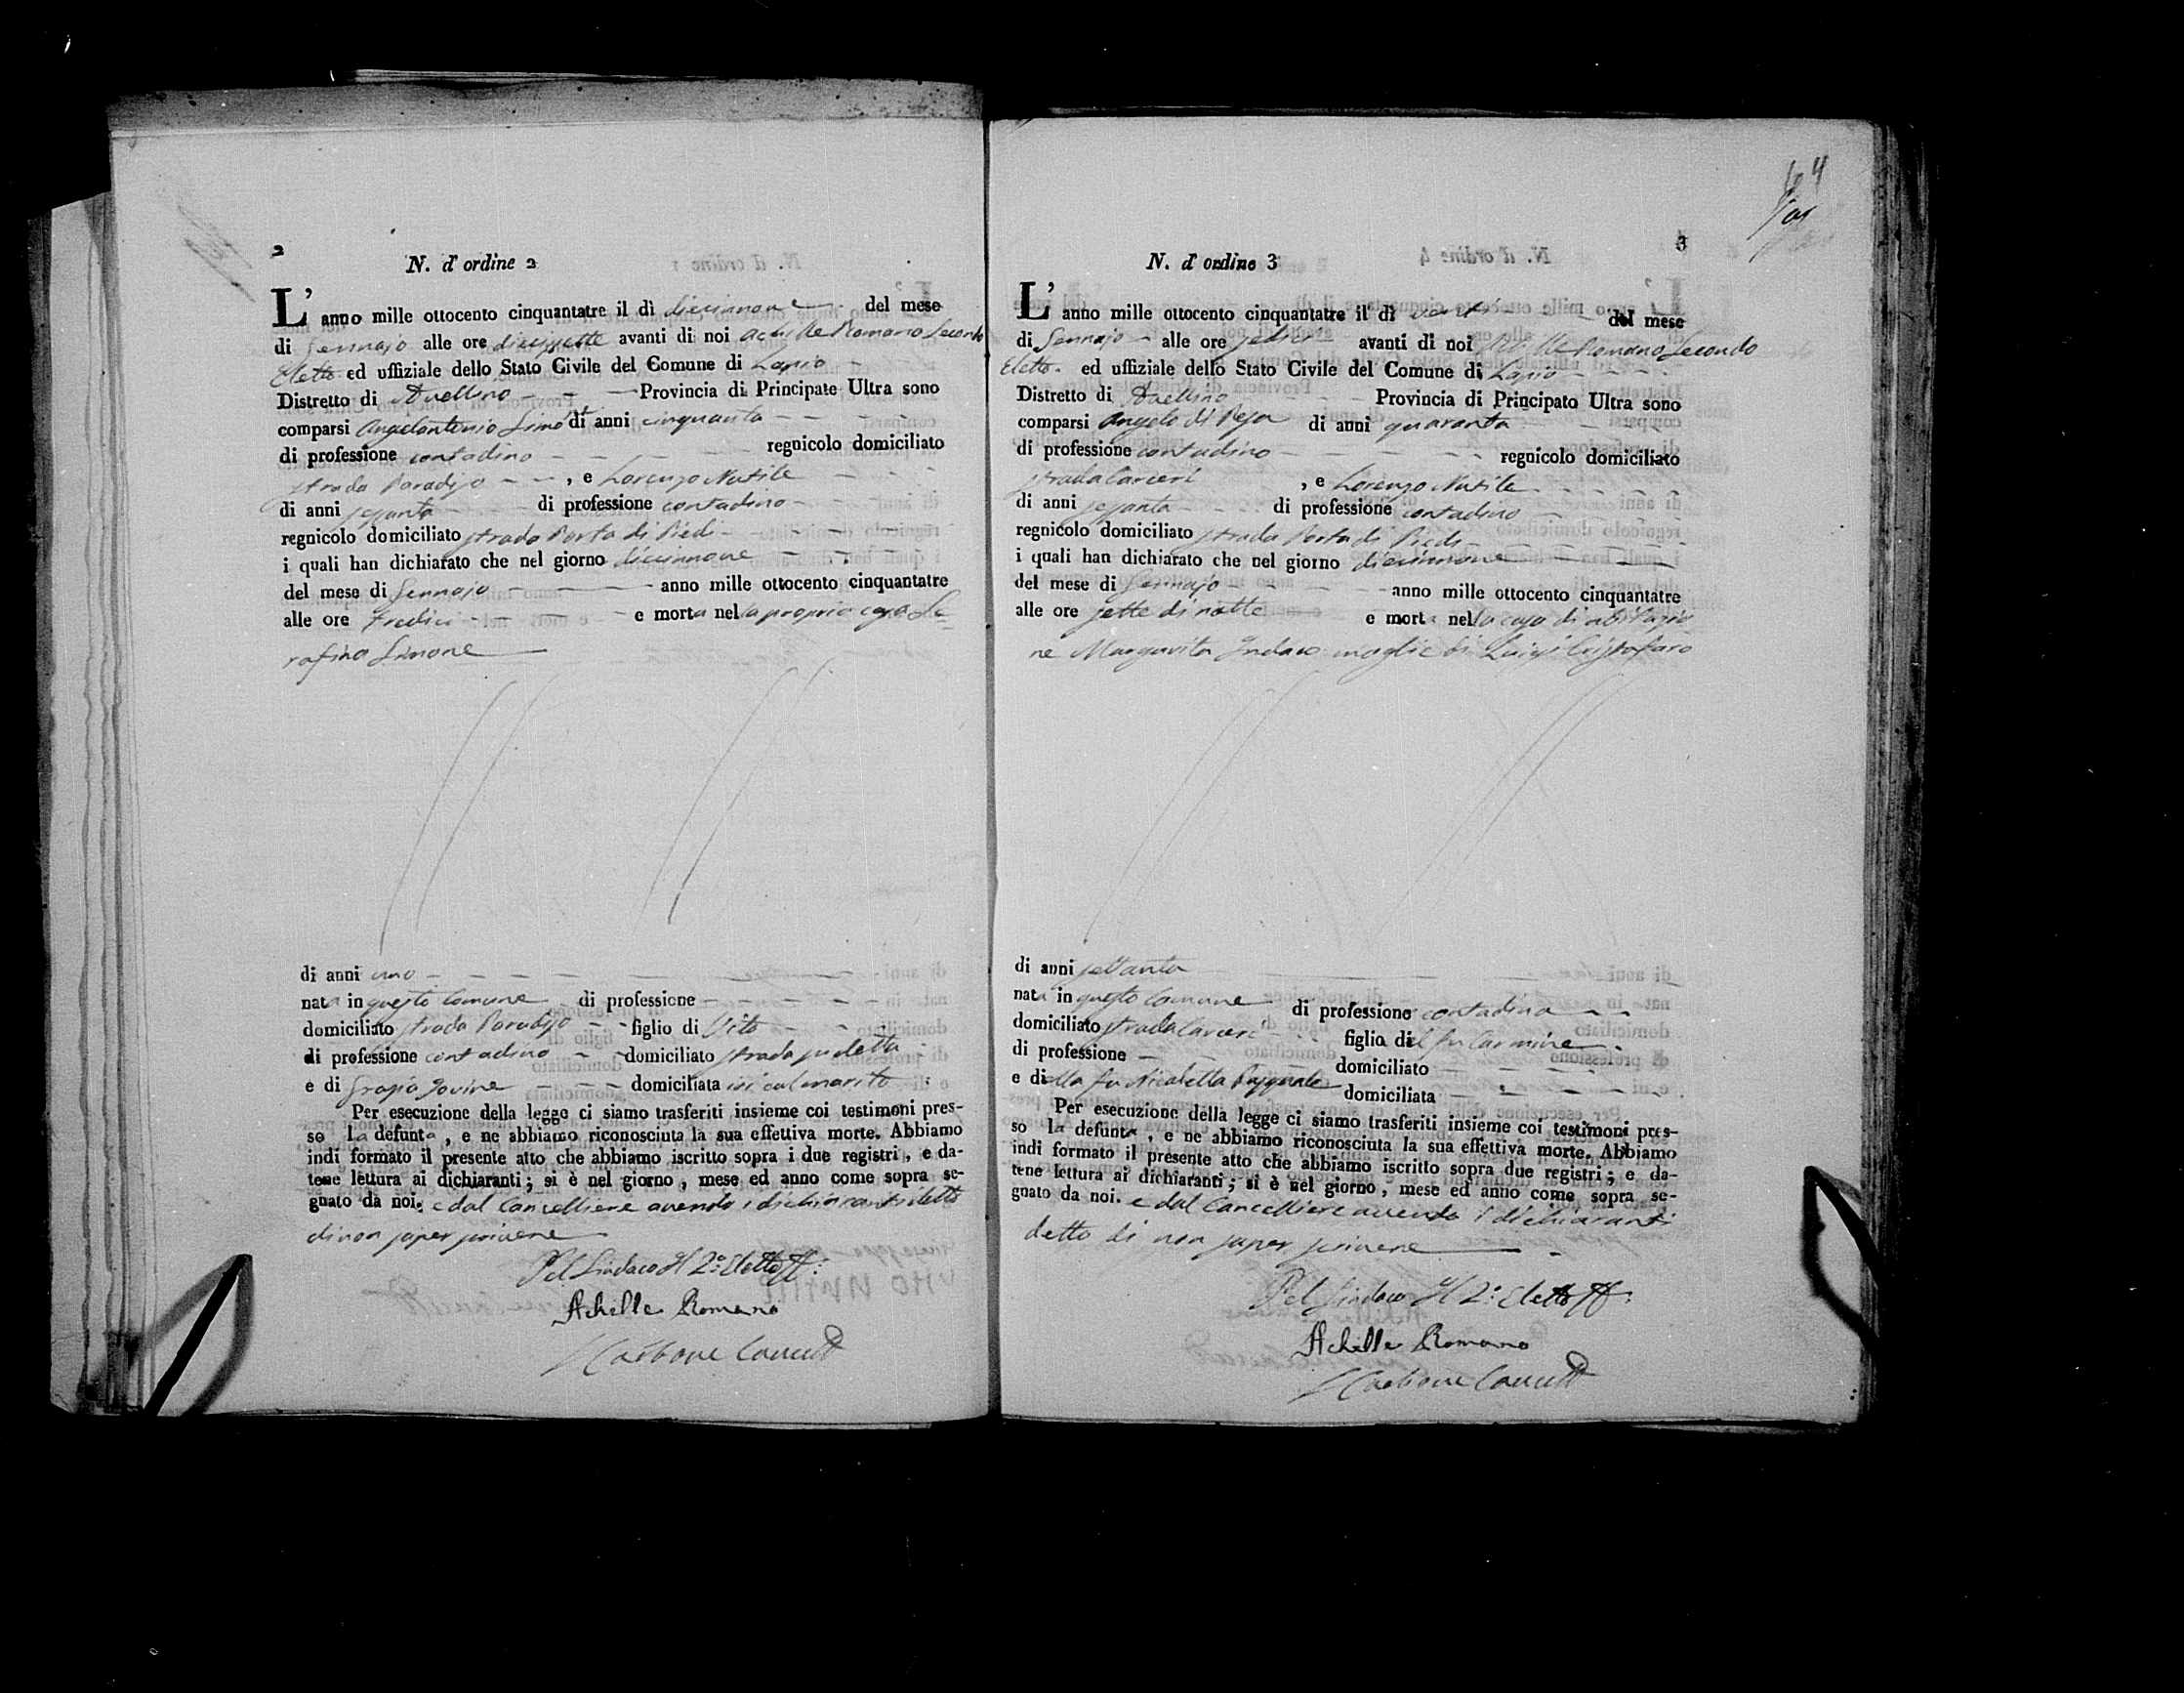 2
N. d' ordine 2
L' anno mille ottocento cinquantatre il dì diecinnove del mese
di Gennajo alle ore diecissette avanti di noi Achille Romano Secondo
Eletto ed uffiziale dello Stato Civile del Comune di Lapio
Distretto di Avellino Provincia di Principate Ultra sono
comparsi Angelantonio Simo di anni cinquanta
di professione contadino regnicolo domiciliato
strada Paradiso , e Lorenzo Nutile
di anni sessanta di professione contadino
regnicolo domiciliato strada Porta di Piedi
i quali han dichiarato che nel giorno diecinnove
del mese di Gennajo anno mille ottocento cinquantatre
alle ore tredici e morta nella propria casa Se-
rafina Simone
di anni uno
nata in questo Comune di professione
domiciliato strada Paradiso figlio di Vito
di professione contadino domiciliato strada sudetta
e di Grazia Iovine domiciliata ivi col marito
Per esecuzione della legge ci siamo trasferiti insieme coi testimoni pres-
so la defunta , e ne abbiamo riconosciuta la sua effettiva morte. Abbiamo
indi formato il presente atto che abbiamo iscritto sopra i due registri , e da-
tene lettura ai dichiaranti ; si è nel giorno , mese ed anno come sopra se-
gnato da noi. e dal Cancelliere avendo i dichiaranti detto
di non saper scrivere
Pel Sindaco Il 2º: Eletto ff:
Achille Romano
Carbone
4
3
N. d' ordine 3
L' anno mille ottocento cinquantatre il dì venti del mese
di Gennajo alle ore sedici avanti di noi Achille Romano Secondo
Eletto ed uffiziale dello Stato Civile del Comune di Lapio
Distretto di Avellino Provincia di Principato Ultra sono
comparsi Angelo di di anni quaranta
di professione contadino regnicolo domiciliato
strada Carceri , e Lorenzo Nutile
di anni sessanta di professione contadino
regnicolo domiciliato strada Porta di Piedi
i quali han dichiarato che nel giorno diecinnove
del mese di Gennajo anno mille ottocento cinquantatre
alle ore sette di notte e morta nella casa di abitazio
ne Margarita Indaco moglie di Luigi Cristofaro
di anni settanta
nata in questo Comune di professione contadina
domiciliato strada Carceri figlia del fu Carmine
di professione domiciliato
e della fu Nicoletta Pasquale domiciliata
Per esecuzione della legge ci siamo trasferiti insieme coi testimoni pres-
so la defunta , e ne abbiamo riconosciuta la sua effettiva morte. Abbiamo
indi formato il presente atto che abbiamo iscritto sopra due registri ; e da-
tene lettura ai dichiaranti ; si è nel giorno , mese ed anno come sopra se-
gnato da noi. e dal Cancelliere avendo i dichiaranti
detto di non saper scrivere
Pel Sindaco Il 2º: Eletto ff:
Achille Romano
Carbone